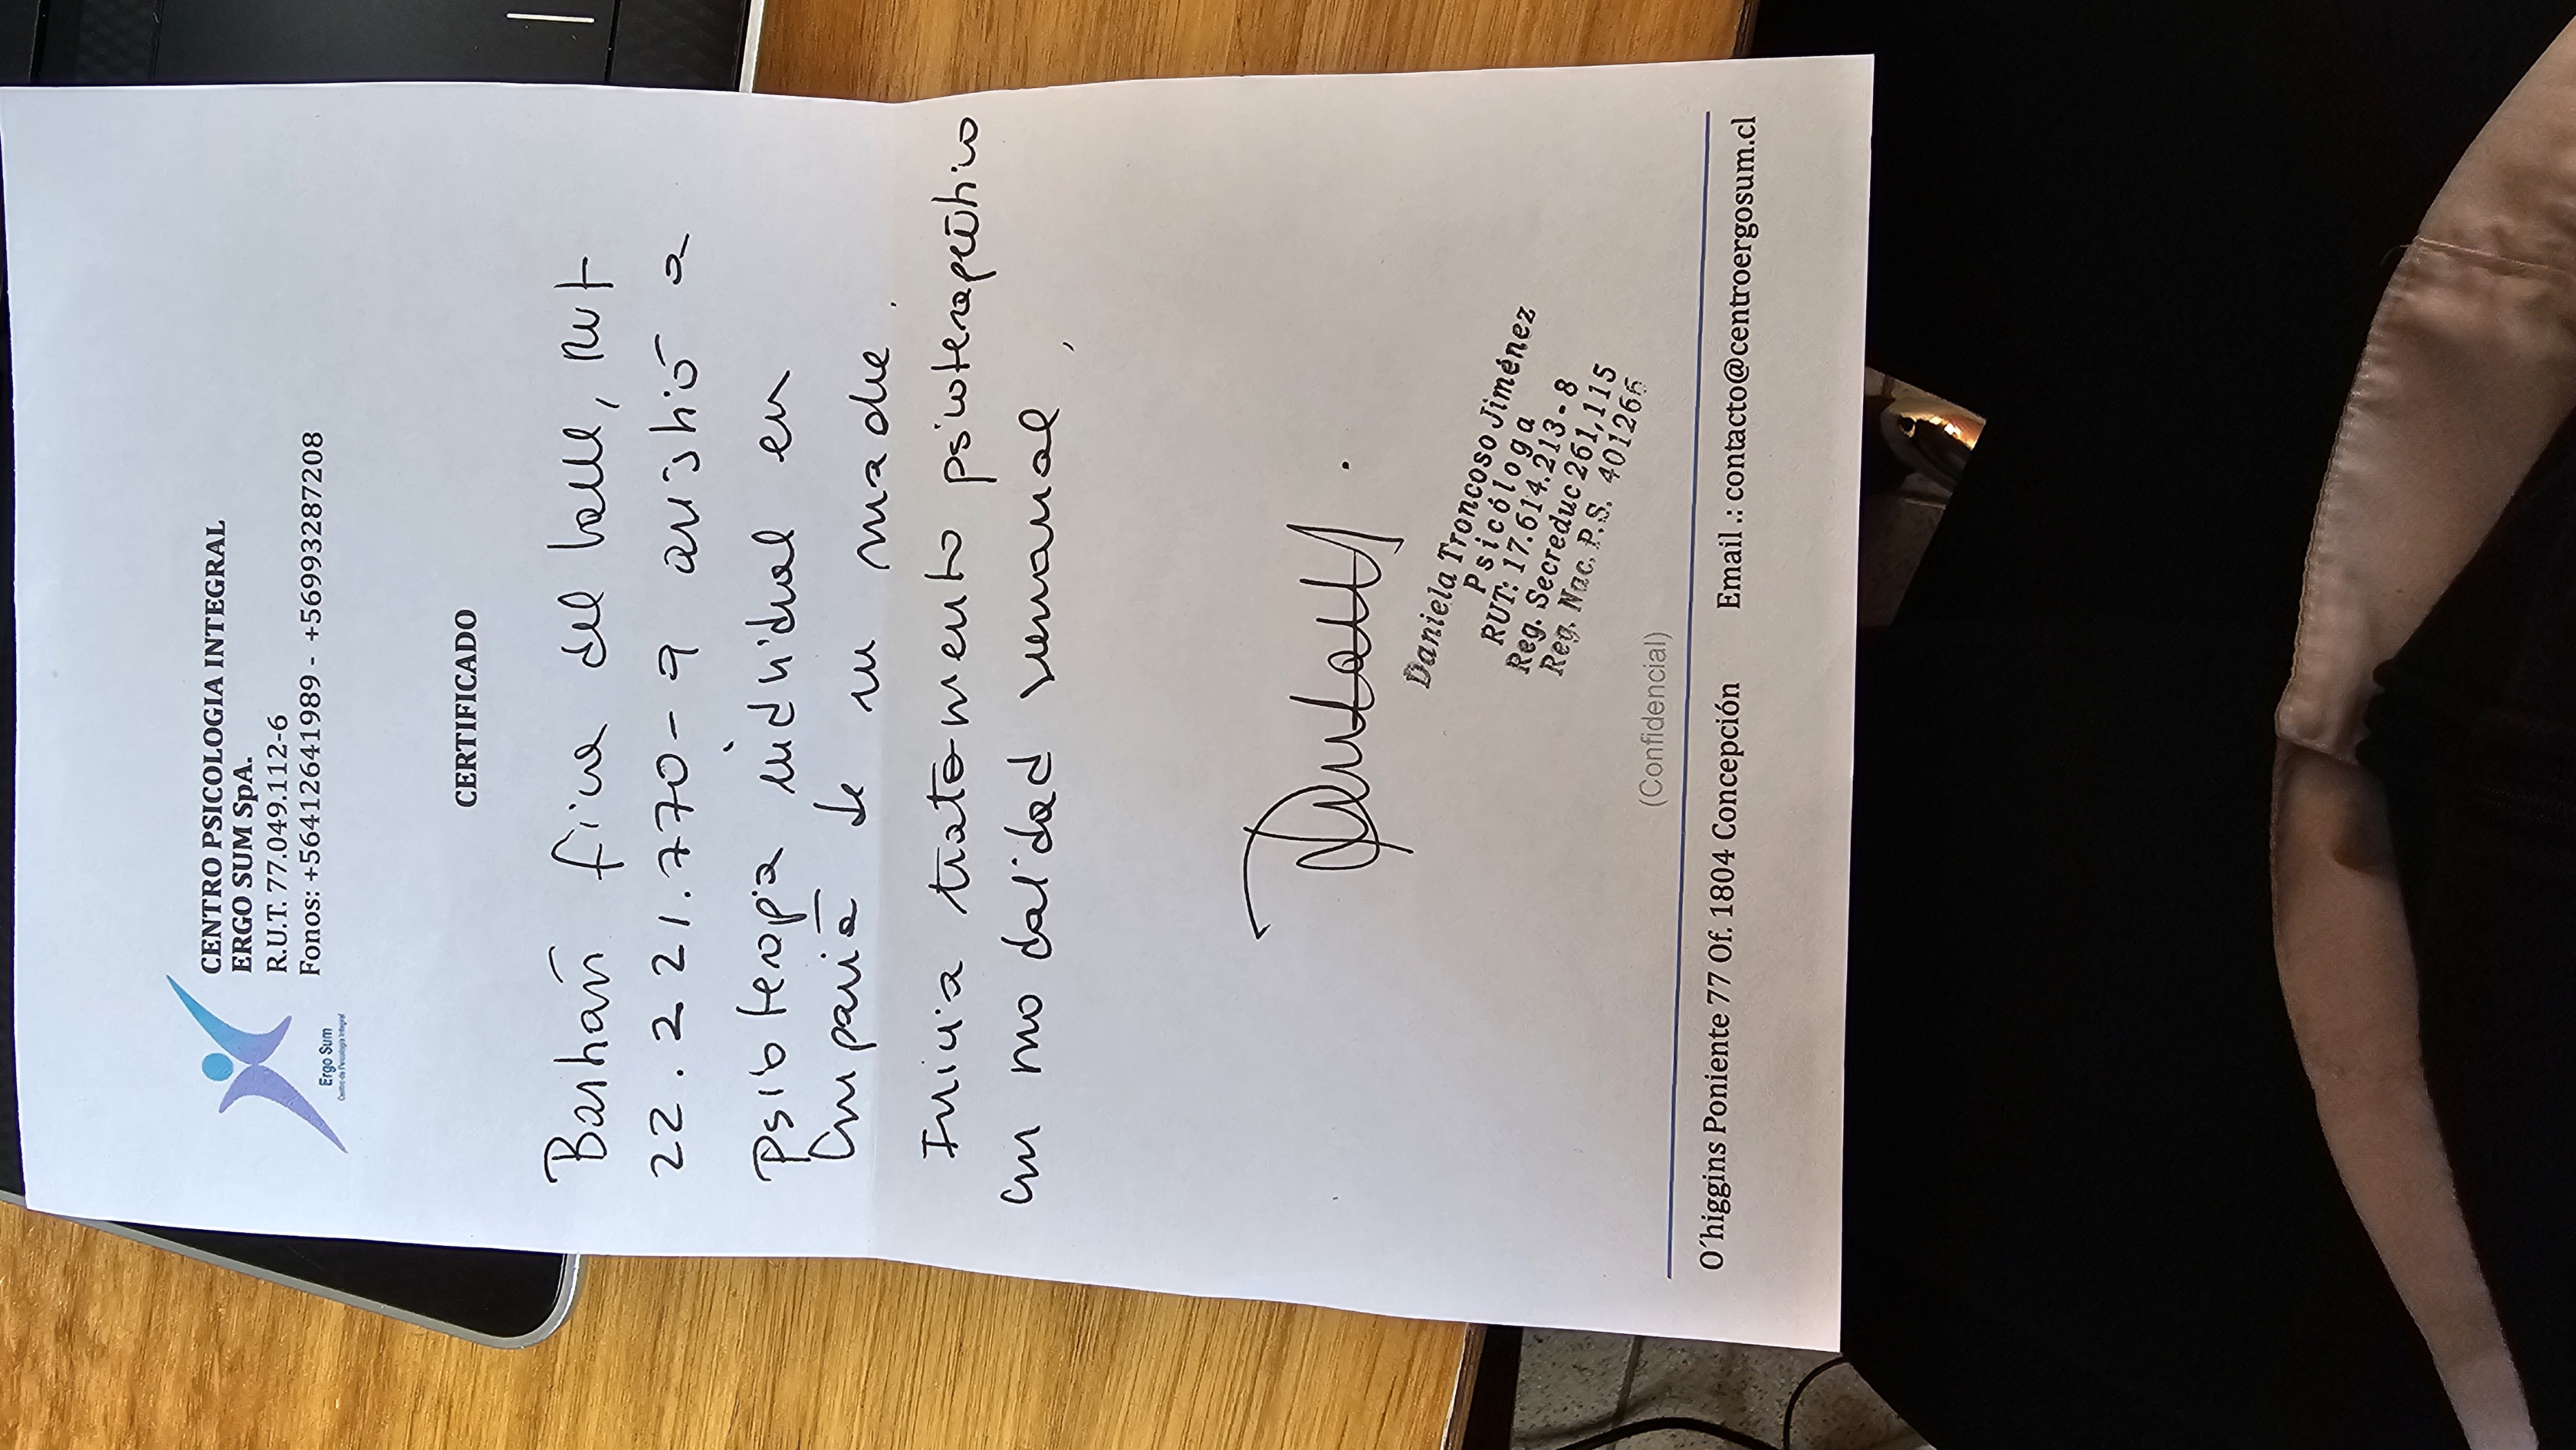 CENTRO PSICOLOGIA INTEGRAL
ERGO SUM SpA.
R.U.T. 77.049.112-6
Fonos: +56412641989 - +56993287208
Ergo Sum
Centro de Psicología Integral
CERTIFICADO
del Valle, rut
22.221.770-9 asistió a
psicoterapia individual en
compañía de su madre.
Inicia tratamiento psicoterapéutico
con modalidad semanal,
Daniela Troncoso Jiménez
Psicóloga
RUT: 17.614.213-8
Reg. Secreduc 261,115
Reg. Nac. P.S. 401266
(Confidencial)
O´higgins Poniente 77 Of. 1804 Concepción Email .: contacto@centroergosum.cl